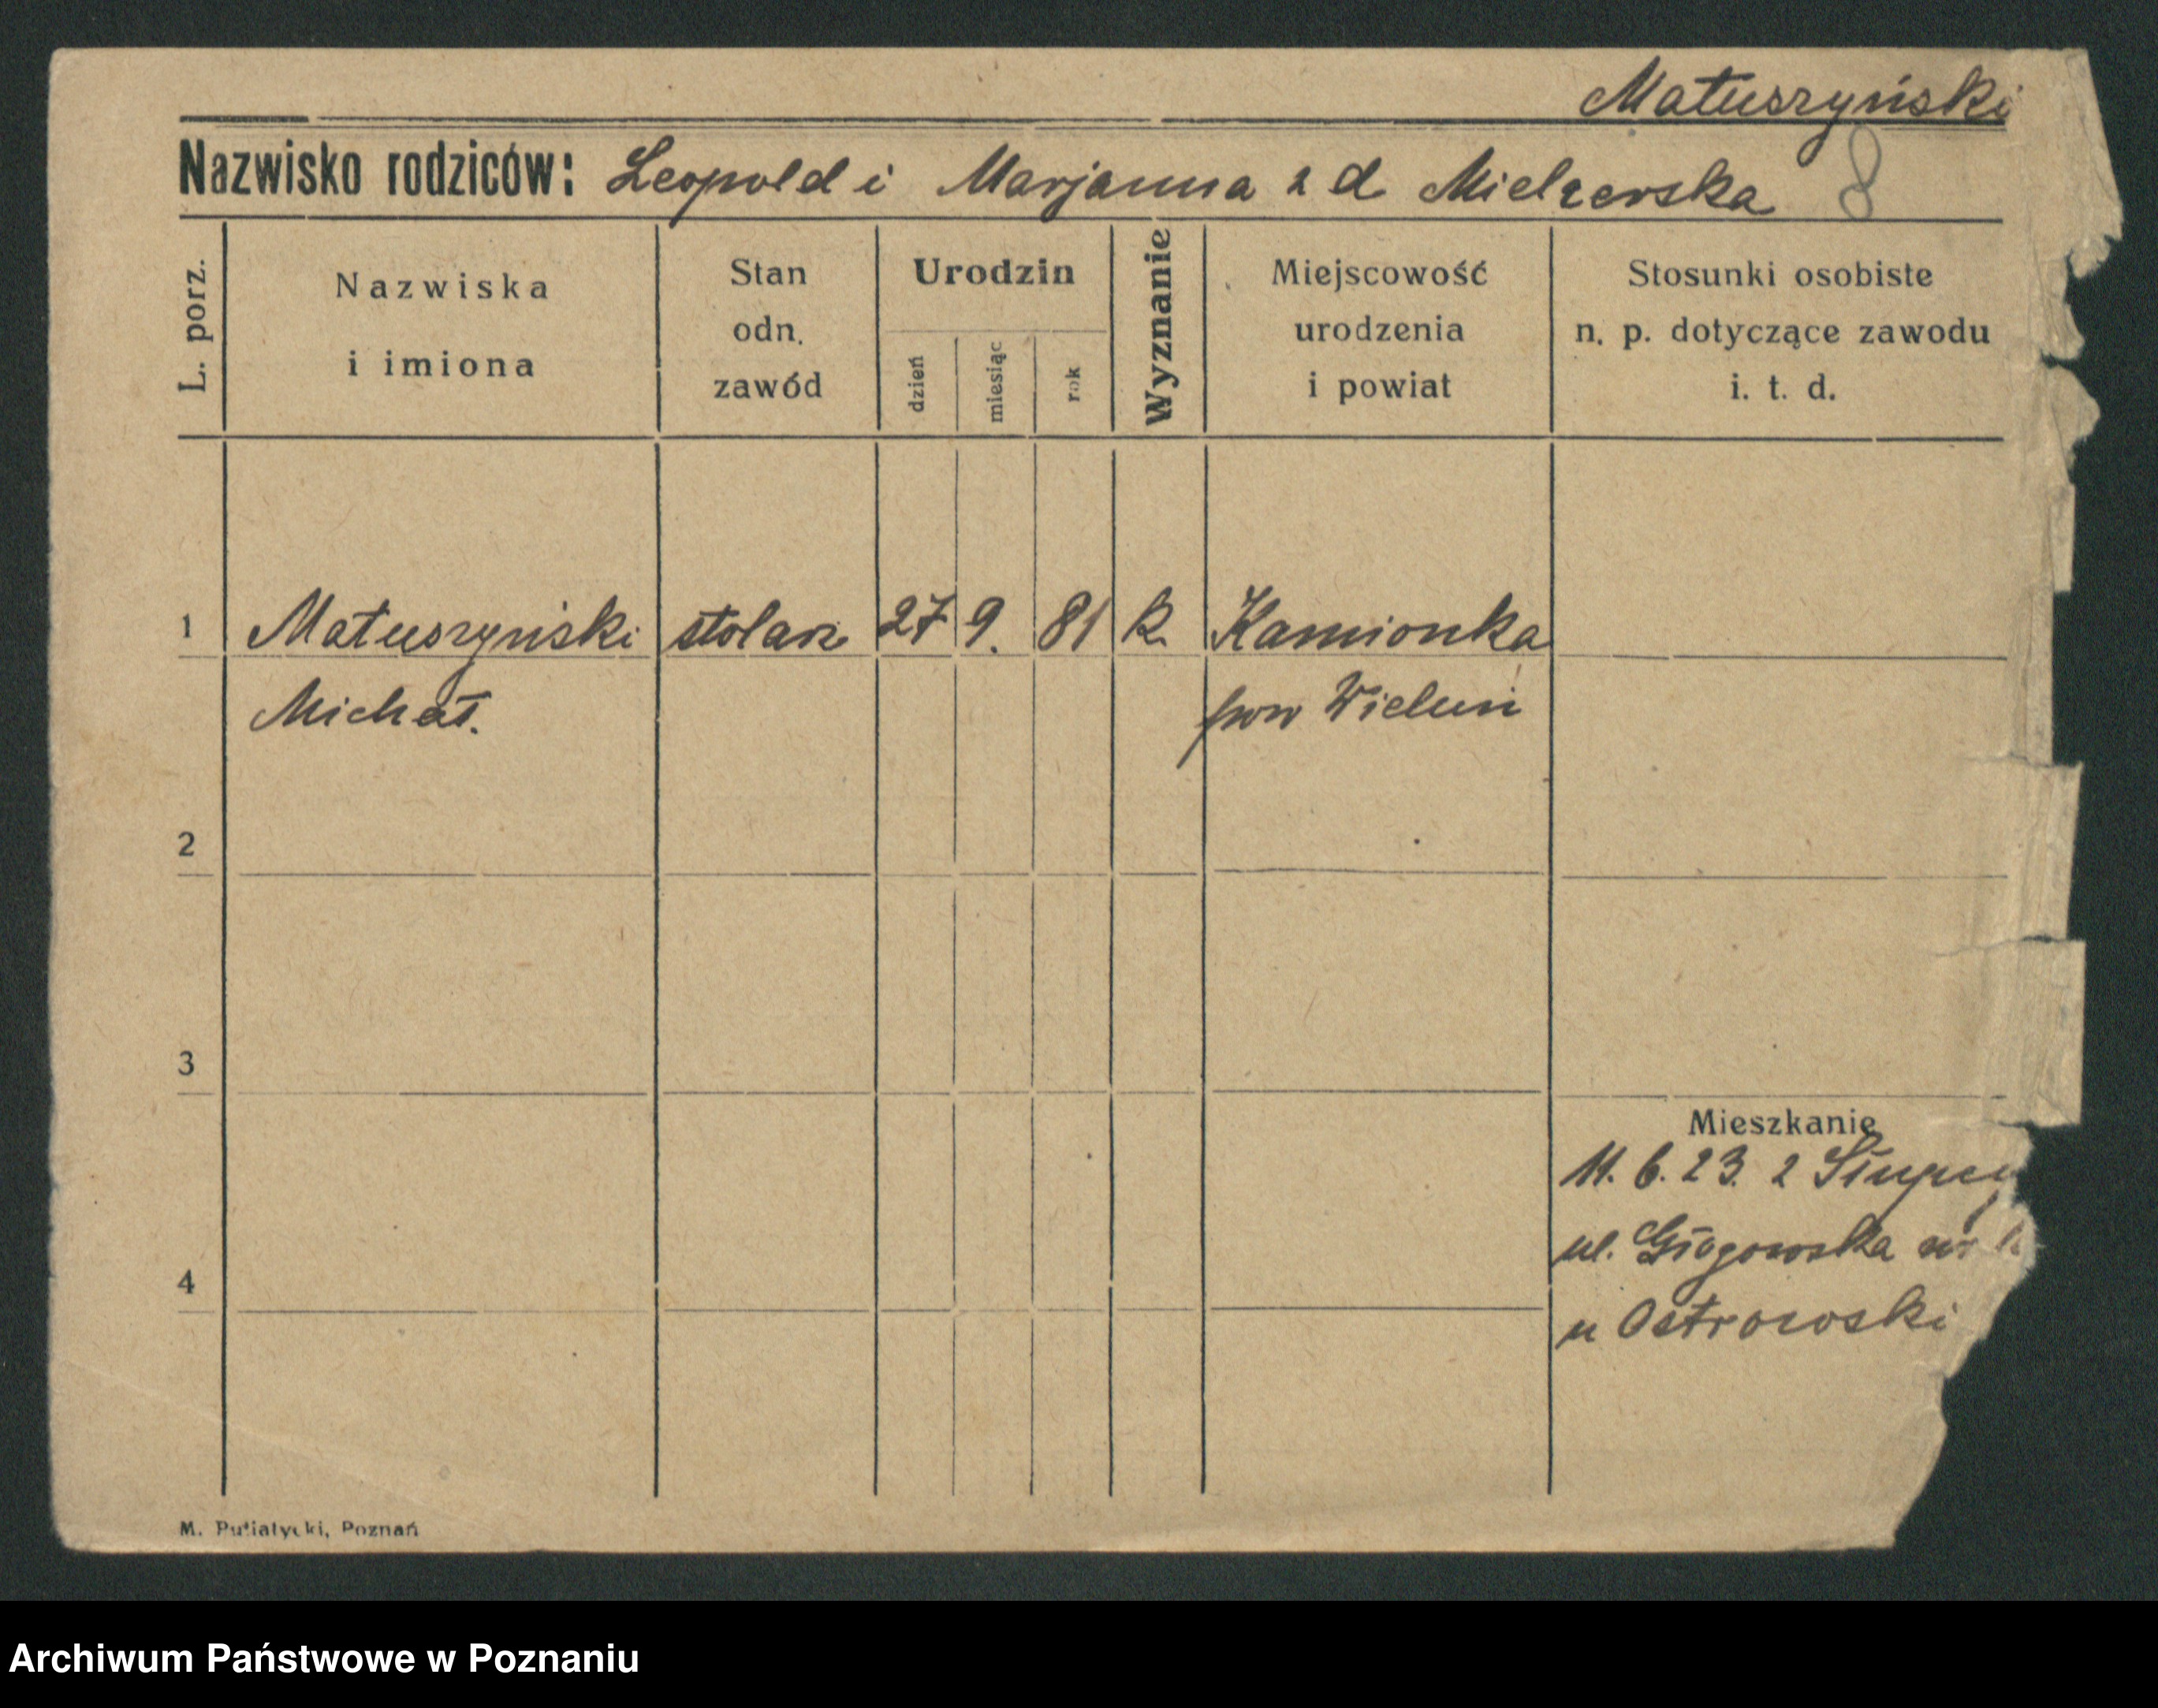 Matuszyński
Nazwisko rodziców: Leopold i Marjanna z d Mielzerska 8
L. porz.
Nazwiska
i imiona
Stan
odn.
zawód
Urodzin
dzień
miesiąc
rok
Wyznanie
Miejscowość
urodzenia
i powiat
Stosunki osobiste
n. p. dotyczące zawodu
i. t. d.
1 Matuszyński stolarz 27 9. 81 k. Kamionka
Michał. pow Wieluń
2
3
Mieszkanie
11. 6. 23. z Słupcy
ul. Głogowska nr
4
u Ostrowski
M. Putiatycki, Poznań
Archiwum Państwowe w Poznaniu